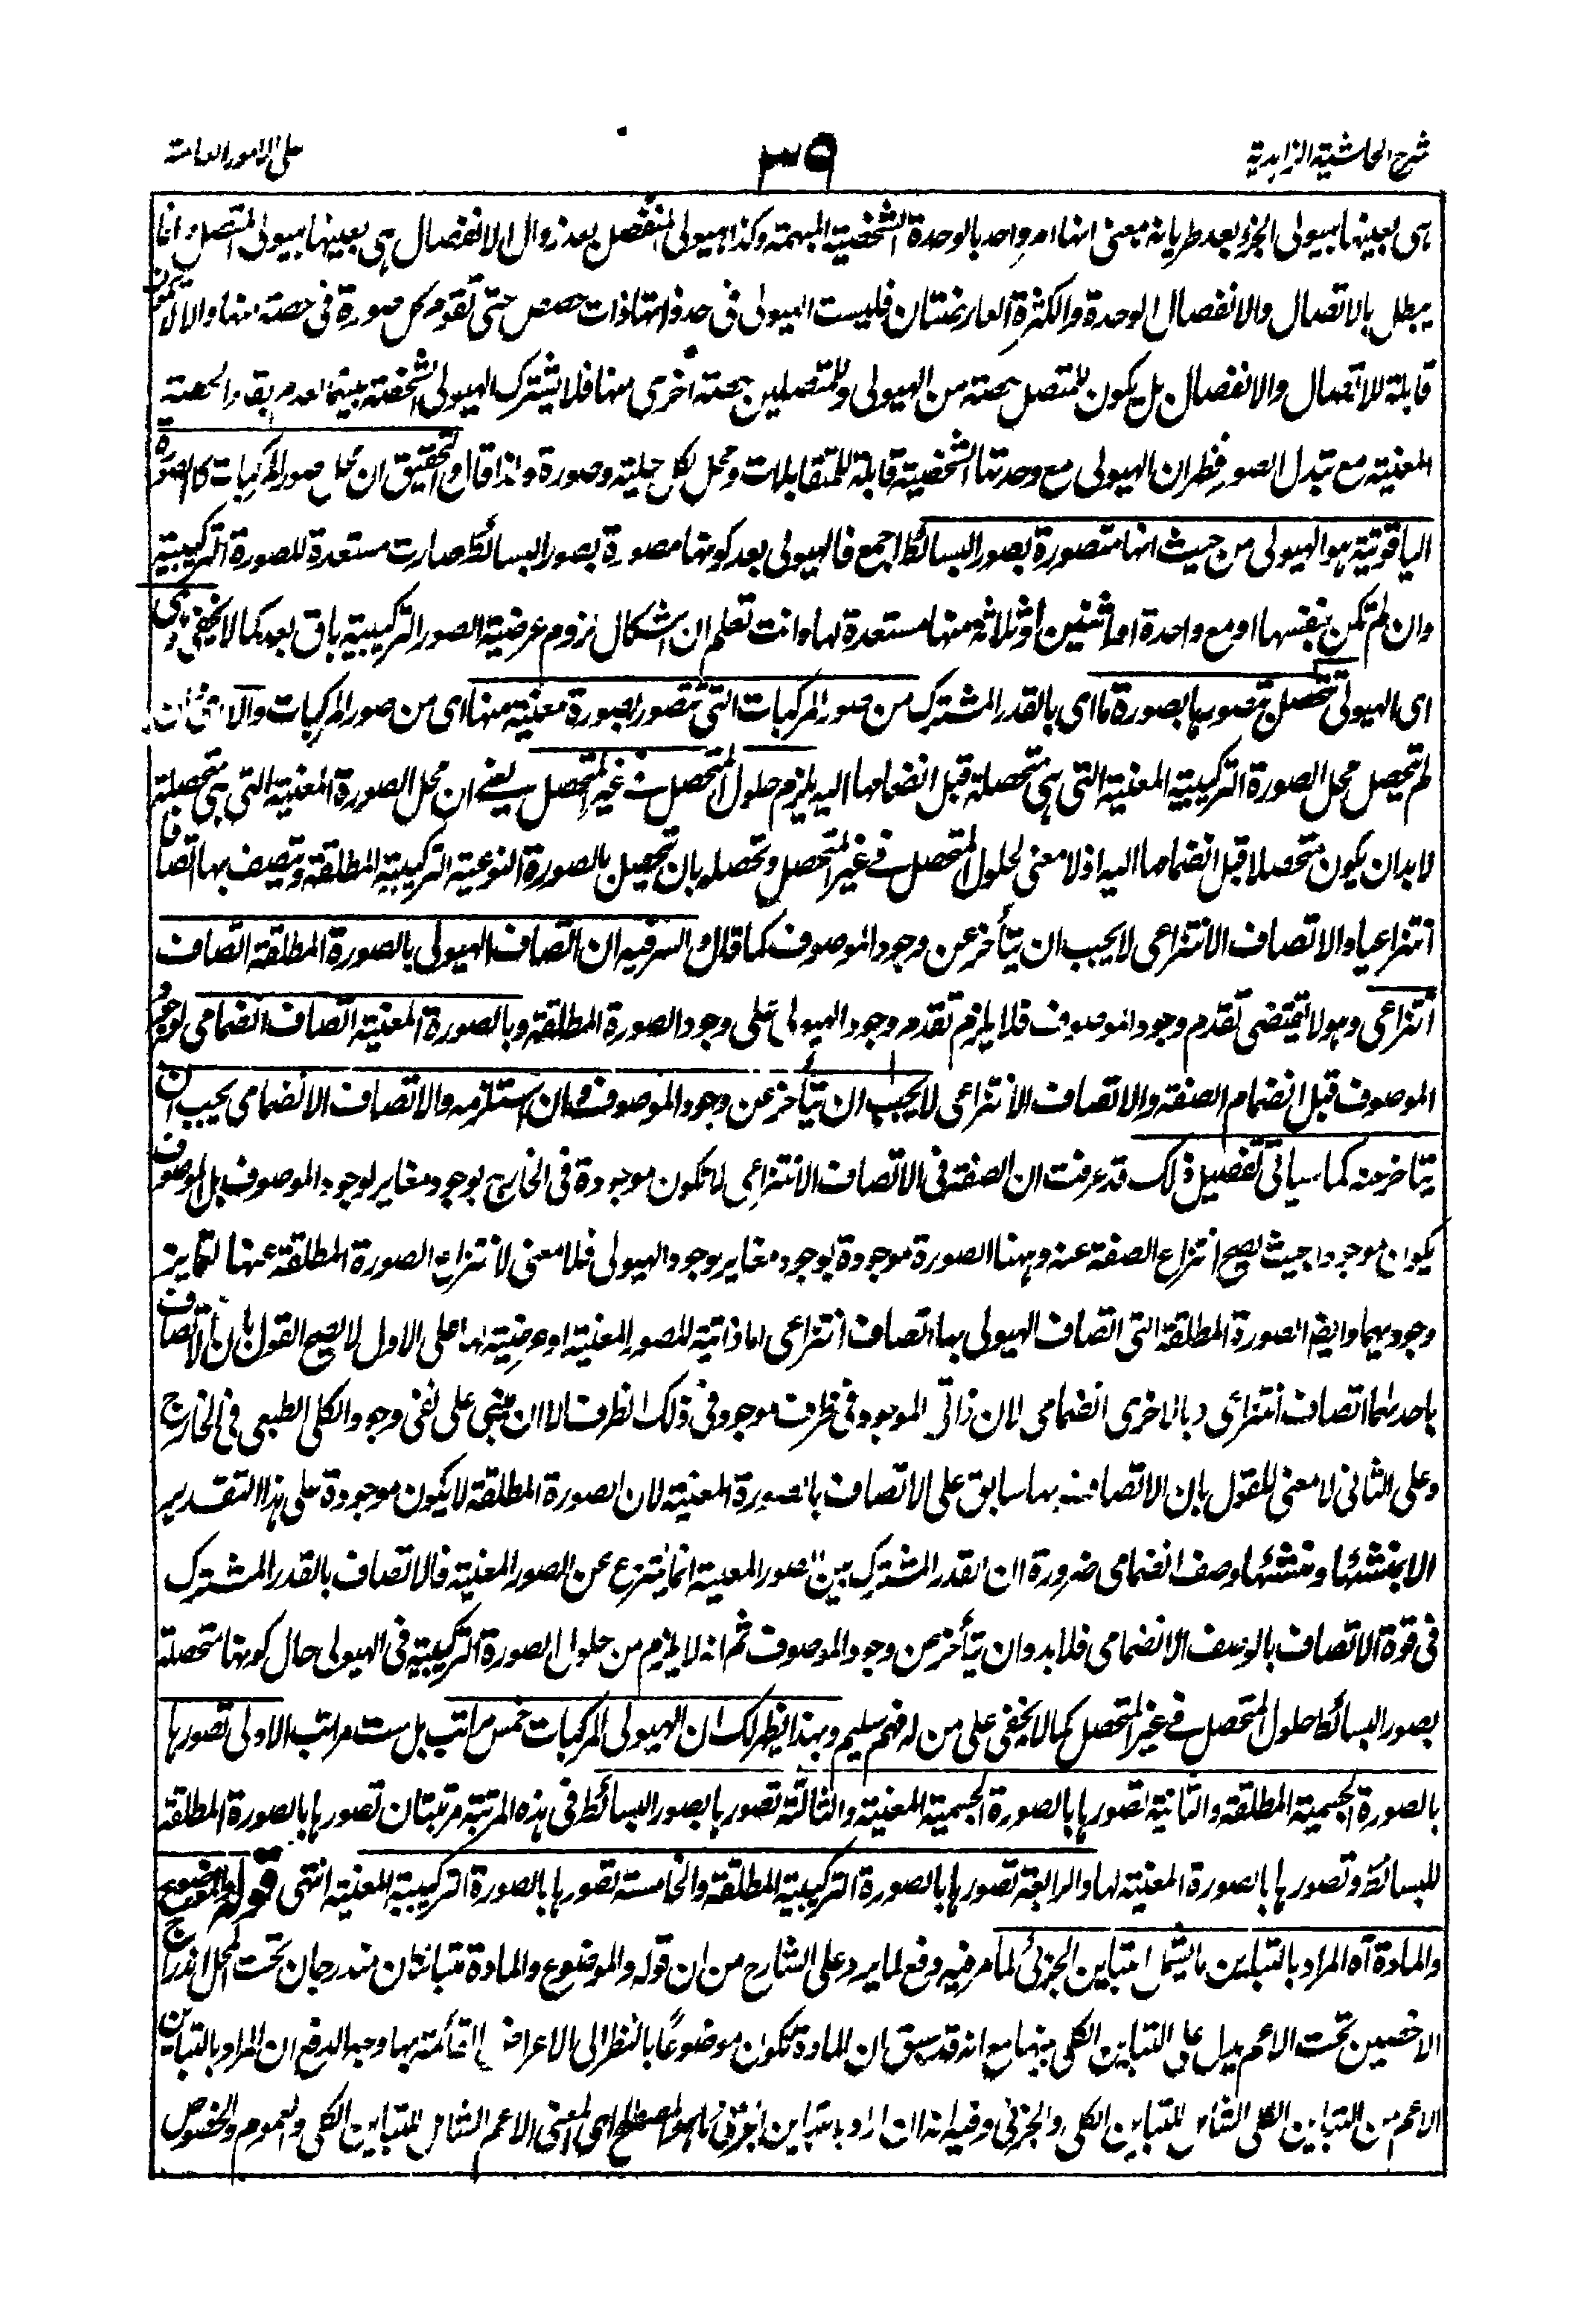 شرح الحاشية الزاهدية
٣٩
على الامور العامة
هى بعينها هيولى الجزؤ بعد طريانه بمعنى انها امر واحد بالوحدة الشخصية المبهمة وكذا هيولى المنفصل بعد زوال الانفصال هى بعينها هيولى المتصل وانما
يبطل بالاتصال والانفصال الوحدة والكثرة العارضتان فليست الهيولى فى حد ذاتها ذات حصص حتى تقوم كل صورة فى حصة منها والا لا تكون
قابلة للاتصال والانفصال بل يكون للمتصل حصة من الهيولى وللمتصلين حصة أخرى منها فلا يشترك الهيولى الشخصية بينهما لعدم بقاء الحصة
المعنية مع تبدل الصور فظهر ان الهيولى مع وحدتها الشخصية قابلة للمتقابلات ومحل لكل حلية وصورة ولذا قال والتحقيق ان محل صور المركبات كالصورة
الياقوتية هو الهيولى من حيث انها متصورة بصور البسائط اجمع فالهيولى بعد كونها مصورة بصور البسائط صارت مستعدة للصورة التركيبية
وان لم تكن بنفسها او مع واحدة او اثنين او ثلاثة منها مستعدة لها وانت تعلم ان اشكال لزوم عرضية الصور التركيبية باق بعد كما لا يخفى وهى
اى الهيولى تتحصل بتصورها بصورة ما اى بالقدر المشترك من صور المركبات التى تتصور بصورة معنية منها اى من صور المركبات والا اى ان
لم تتحصل محل الصورة التركيبية المعنية التى هى متحصلة قبل انضمامها اليه يلزم حلول المتحصل فى غير المتحصل يعنى ان محل الصورة المعنية التى هى متحصلة
لابد ان يكون متحصلا قبل انضمامها اليه اذ لا معنى لحلول المتحصل فى غير المتحصل وتحصله بان تحصل بالصورة النوعية التركيبية المطلقة ويتصف بها اتصافا
انتزاعيا والاتصاف الانتزاعى لا يجب ان يتأخر عن وجود الموصوف كما قال والسر فيه ان اتصاف الهيولى بالصورة المطلقة اتصاف
انتزاعى وهو لا يقتضى تقدم وجود الموصوف فلا يلزم تقدم وجود الهيولى على وجود الصورة المطلقة وبالصورة المعنية اتصاف انضمامى لوجود
الموصوف قبل انضمام الصفة والاتصاف الانتزاعى لا يجب ان يتأخر عن وجود الموصوف وان استلزمه والاتصاف الانضمامى يجب ان
يتاخر عنه كما سيأتى تفصيل ذلك قد عرفت ان الصفة فى الاتصاف الانتزاعى لا تكون موجودة فى الخارج بوجود مغاير لوجود الموصوف بل الموصوف
يكون موجودا بحيث يصح انتزاع الصفة عنه وههنا الصورة موجودة بوجود مغاير لوجود الهيولى فلا معنى لانتزاع الصورة المطلقة عنها لتمايز
وجوديهما وايضا الصورة المطلقة التى اتصاف الهيولى بها اتصاف انتزاعى اما ذاتية للصور المعنية او عرضية اما على الاول لا يصح القول بان الاتصاف
باحدهما اتصاف انتزاعى وبالاخرى انضمامى لان ذاتى الموجود فى ظرف موجود فى ذلك الظرف الا ان يبنى على نفى وجود الكلى الطبعى فى الخارج
وعلى الثانى لا معنى للقول بان الاتصاف بها سابق على الاتصاف بالصورة المعنية لان الصورة المطلقة لا يكون موجودة على هذا التقدير
الا بمنشئها ومنشئها وصف انضمامى ضرورة ان القدر المشترك بين الصور المعنية انما ينتزع عن الصور المعنية فالاتصاف بالقدر المشترك
فى قوة الاتصاف بالوصف الانضمامى فلابد وان يتأخر عن وجود الموصوف ثم انه لا يلزم من حلول الصورة التركيبية فى الهيولى حال كونها متحصلة
بصور البسائط حلول المتحصل فى غير المتحصل كما لا يخفى على من له فهم سليم وبهذا يظهر لك ان الهيولى المركبات خمس مراتب بل ست مراتب الاولى تصورها
بالصورة الجسمية المطلقة والثانية تصورها بالصورة الجسمية المعنية والثالثة تصورها بصور البسائط فى هذه المرتبة مرتبتان تصورها بالصورة المطلقة
للبسائط وتصورها بالصورة المعنية لها والرابعة تصورها بالصورة التركيبية المطلقة والخامسة تصورها بالصورة التركيبية المعنية انتهى قوله والموضوع
والمادة آه المراد بالتباين ما يشمل التباين الجزئى لما مر فيه دفع لما يرد على الشارح من ان قوله والموضوع والمادة متبائنان مندرجان تحت المحل اندراج
الاخصين تحت الاعم يدل على التباين الكلى بينهما مع انه قد سبق ان المادة تكون موضوعًا بالنظر الى الاعراض القائمة بها وجه الدفع ان المراد بالتباين
الاعم من التباين الكلى الشامل للتباين الكلى والجزئى وفيه انه ان اراد بالتباين الجزئى ما هو المصطلح اى المعنى الاعم الشامل للتباين الكلى والعموم والخصوص